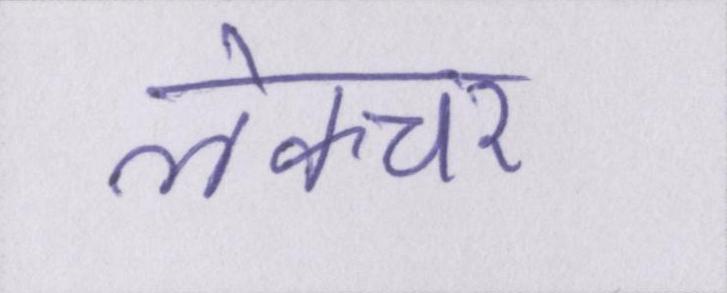 लेक्चर